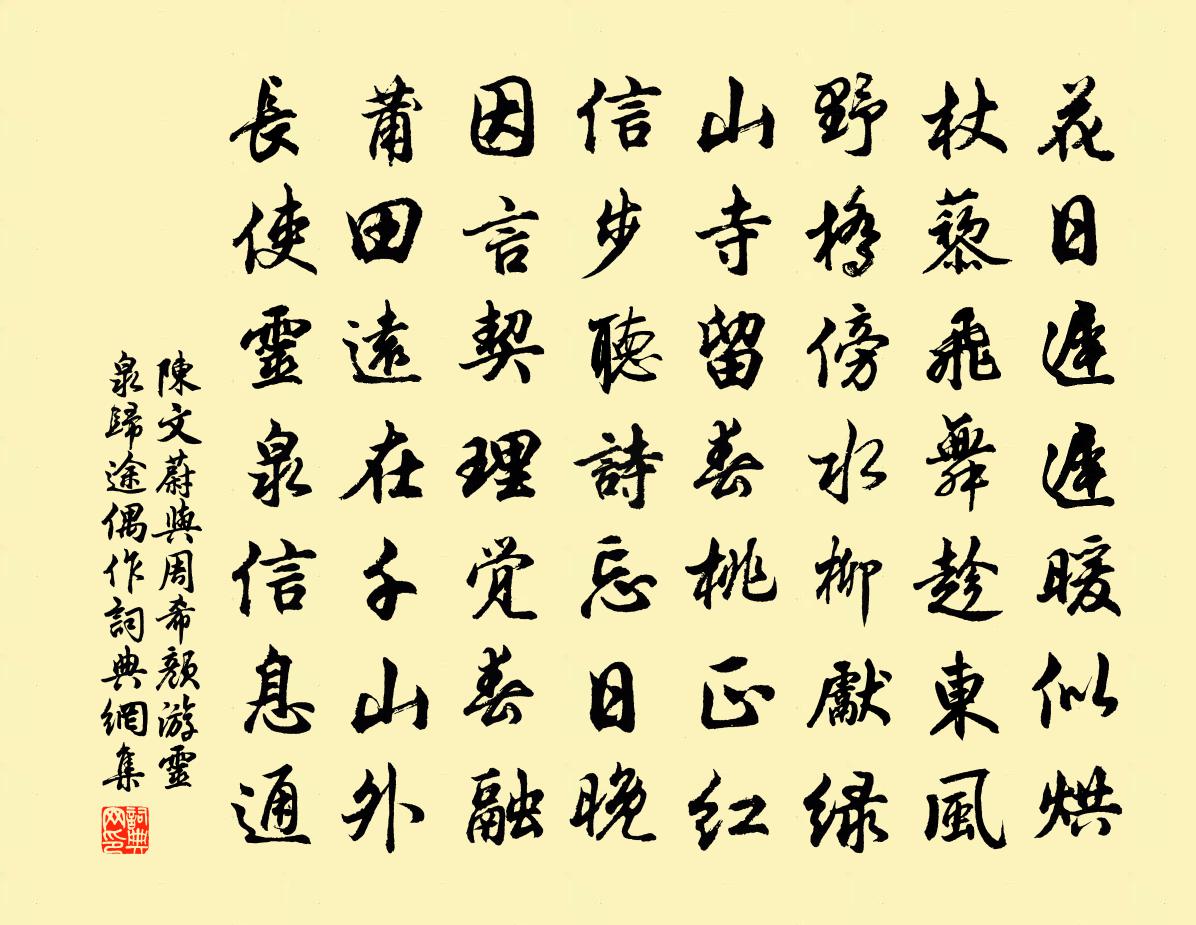 花日遲遲暖似烘
杖藜飛舞趁東風
野橋傍水柳獻綠
山寺留春桃正紅
信步聽詩忘日晚
因言契理覺春融
莆田遠在千山外
長使靈泉信息通
陳文蔚與周希顏游靈
泉歸途偶作詞典網集
詞典
网印